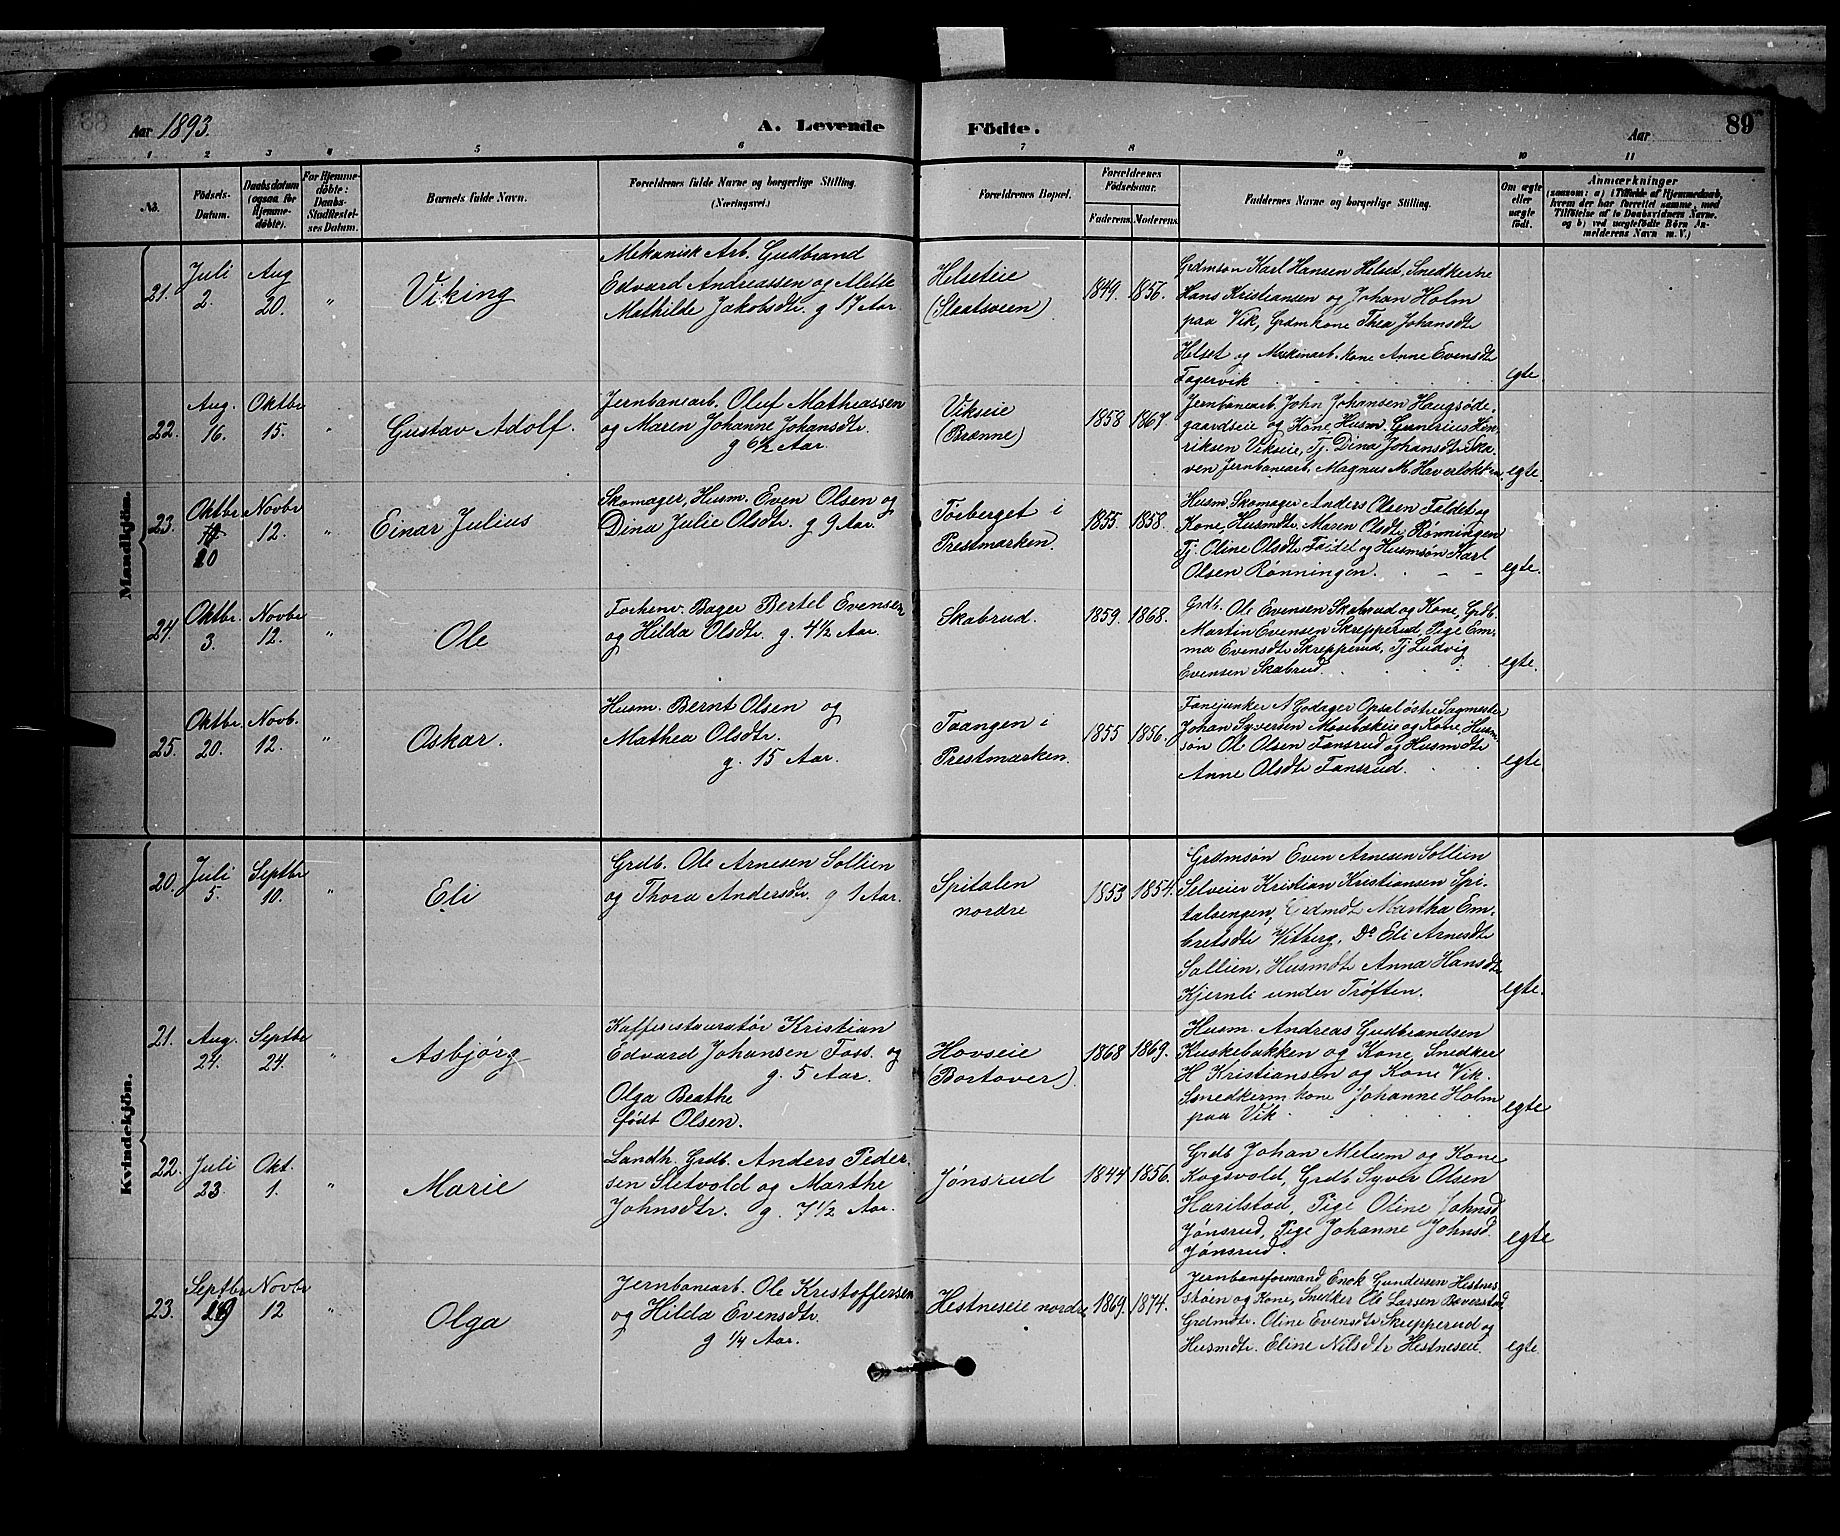 Aar 1893. A. Levende Födte. Aar 89
1 2 3 4 5 6 7 8 9 10 11
No. Födsels-Datum. Daabsdatum (ogsaa for Hjemmedöbte). For Hjemmedöbte: Daabs-Stadfæstelses Datum. Barnets fulde Navn. Forældrenes fulde Navne og borgerlige Stilling. (Næringsvei.) Forældrenes Bopæl. Forældrenes Födselsaar. Faderens. Moderens. Faddernes Navne og borgerlige Stilling. Om ægte eller uægte födt. Anmærkninger (saasom: a) i Tilfælde af Hjemmedaab, hvem der har forrettet samme, med Tilföielse af to Daabsvidners Navne, og b) ved uægtefödte Börn Anmelderens Navn m. V.)
Mandkjön.
21. Juli 2. Aug 20. " Viking
Mekanisk Arb. Gudbrand
Edvard Andreassen og Alette
Mathilde Jakobsdtr. g 17 Aar.
Helseteie
(Slaatsveen)
1849. 1856.
Grdmsøn Karl Hansen Helset, Snedkerne
Hans Kristiansen og Johan Holm
paa Vik, Grdmkone Thea Johansdtr
Helset og Maskinarb. kone Anne Evensdtr
Fagervik
egte.
22. Aug. 16. Oktbr 15. " Gustav Adolf.
Jernbanearb. Oluf Mathiassen
og Maren Johanne Johansdtr.
g 6½ Aar.
Vikseie
(Brænne)
1858 1867.
Jernbanearb. John Johansen Haugsøde-
gaardseie og Kone, Husm. Gunerius Hen-
riksen Vikseie, Tj. Dina Johansdtr Ska-
ven Jernbanearb. Magnus M. Haverlokken
egte.
23. Oktbr 20 Novbr 12. " Einar Julius
Skomager, Husm. Even Olsen og
Dina Julie Olsdtr. g 9 Aar.
Torberget i
Prestmarken.
1855. 1858.
Husm. Skomager Anders Olsen Faldet og
Kone, Husmdtr. Maren Olsdtr Rønningen
Tj. Oline Olsdtr Faldet og Husmsøn Karl
Olsen Rønningen.
egte.
24. Oktbr. 3. Novbr 12. " Ole
Forhenv. Bager Bertel Evensen
og Hilda Olsdtr. g. 4½ Aar.
Skabrud.
1859. 1868.
Grdb. Ole Evensen Skabrud og Kone, Grdb.
Martin Evensen Skrepperud, Pige Em-
ma Evensdtr Skrepperud, Tj Ludvig
Evensen Skabrud.
egte.
25. Oktbr. 20. Novb. 12. " Oskar.
Husm. Bernt Olsen og
Mathea Olsdtr.
g. 15 Aar.
Taangen i
Prestmarken.
1855 1856.
Fanejunker A Godager Opsal østre Sagmester
Johan Syversen Mosebækeie og Kone, Hus-
søn Ole Olsen Fansrud og Husmdtr
Anne Olsdtr Fansrud.
egte
Kvindekjön.
20. Juli 5. Septbr 10. " Eli
Grdb. Ole Arnesen Sollien
og Thora Andersdtr. g 1 Aar.
Spitalen
nordre
1853 1854.
Grdmsøn Even Arnesen Sollien
Selveier Kristian Kristiansen Spi-
talsengen, Grdmdtr Martha Em-
bretsdtr Vitberg, Do Eli Arnesdtr
Sollien, Husmdtr Anna Hansdtr
Kjernli under Trøften.
egte.
21. Aug. 24. Septbr 24. " Asbjørg
Kafferestauratør Kristian
Edvard Johansen Foss. og
g. 5 Aar.
Olga Beathe
født Olsen.
Hovseie
(Bortover)
1868 1869.
Husm. Andreas Gudbrandsen
Kuskebakken og Kone, Snedker
H Kristiansen og Kone Vik.
Snedkerm kone Johanne Holm
paa Vik
egte
22. Juli 23. Okt. 1. " Marie
Landh. Grdb. Anders Peder-
sen Sletvold og Marthe
Johnsdtr. g. 7½ Aar.
Jønsrud
1844 1856.
Grdb Johan Melum og Kone
Kogsvold, Grdb Syver Olsen
Harilstad, Pige Oline Johnsd
Jønsrud, Pige Johanne Johnsd.
Jønsrud.
egte
23. Septbr Novbr 12 " Olga
Jernbanearb. Ole Kristoffersen
og Hilda Evensdtr.
g ¼ Aar.
Hestneseie nordre
1869. 1874.
Jernbaneformand Enok Gundersen Hestnes
støen og Kone, Snedker Ole Larsen Bæverstad
Grdmdtr. Oline Evensdtr Skrepperud og
Husmdtr. Eline Nilsdtr Hestneseie.
egte.